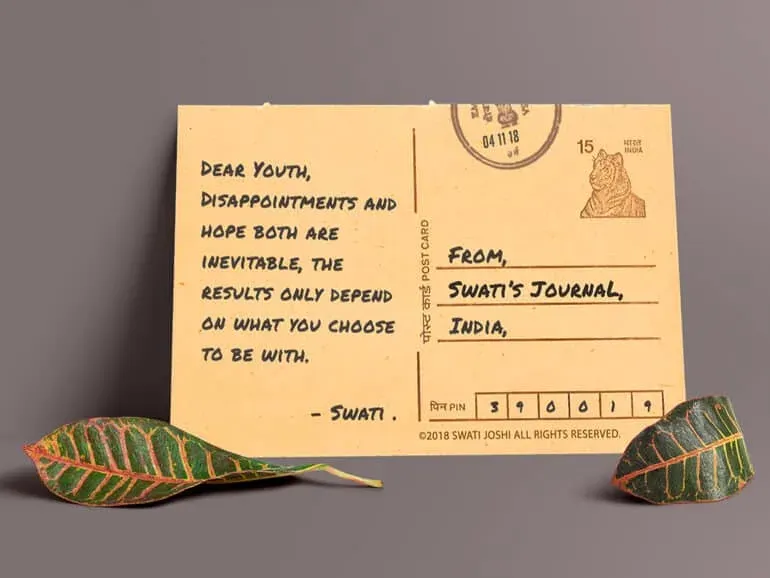 DEAR YOUTH,
DISAPPOINTMENTS AND
HOPE BOTH ARE
INEVITABLE, THE
RESULTS ONLY DEPEND
ON WHAT YOU CHOOSE
TO BE WITH.
- SWATI .
पोस्ट कार्ड POST CARD
04 11 18
15
भारत
INDIA
FROM,
SWATI'S JOURNAL,
INDIA,
पिन PIN 390019
©2018 SWATI JOSHI ALL RIGHTS RESERVED.